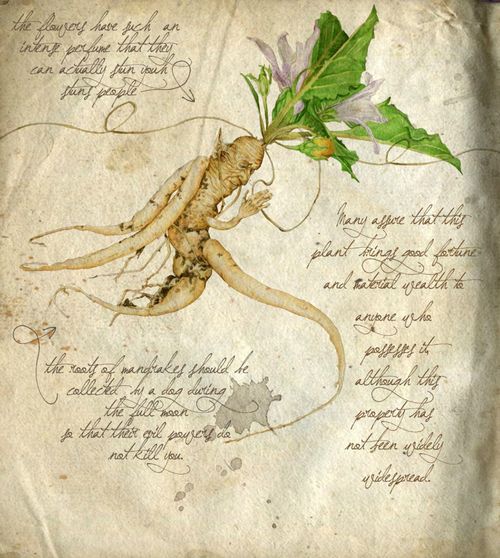 the flowers have such an
intense perfume that they
can actually stun youth
stuns people
Many aspire that this
plant brings good fortune
and material wealth to
anyone who
possesses it,
although this
property has
not been widely
widespread.
the roots of mandrakes should be
collected by a dog during
the full moon
so that their evil powers do
not kill you.